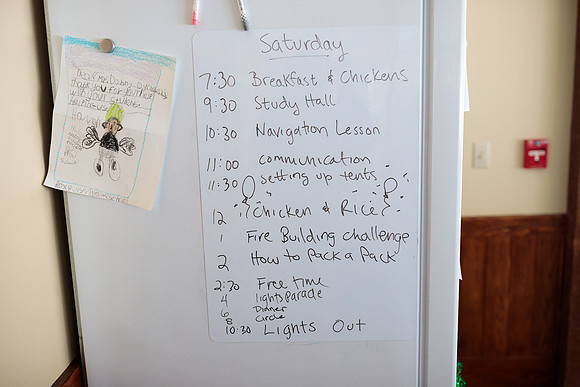 Saturday
7:30 Breakfast & Chickens
9:30 Study Hall
10:30 Navigation Lesson
11:00 communication
11:30 setting up tents
12 Chicken & Rice
1 Fire Building challenge
2 How to Pack a Pack
2:30 Free time
4 lights parade
6 Dinner
8 Circle
10:30 Lights Out
thank you for your help
with your students